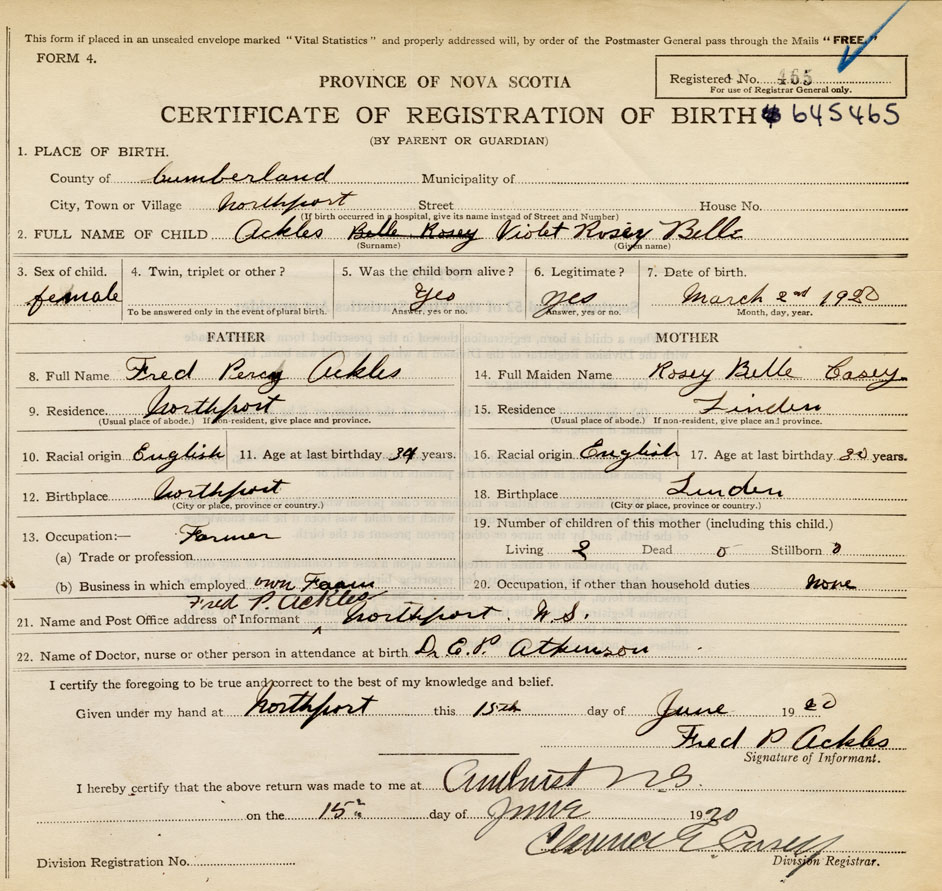 This form if placed in an unsealed envelope marked "Vital Statistics" and properly addressed will, by order of the Postmaster General pass through the Mails "FREE."
FORM 4.
Registered No. 465
For use of Registrar General only.
PROVINCE OF NOVA SCOTIA
CERTIFICATE OF REGISTRATION OF BIRTH # 645465
(BY PARENT OR GUARDIAN)
1. PLACE OF BIRTH.
County of Cumberland Municipality of
City, Town or Village Northport Street House No.
(If birth occurred in a hospital, give its name instead of Street and Number)
2. FULL NAME OF CHILD Ackles Belle Rosey Violet Rosey Belle
(Surname) (Given name)
3. Sex of child. 4. Twin, triplet or other? 5. Was the child born alive? 6. Legitimate? 7. Date of birth.
female Yes yes March 2nd 1920
To be answered only in the event of plural birth. Answer, yes or no. Answer, yes or no. Month, day, year.
FATHER MOTHER
8. Full Name Fred Percy Ackles 14. Full Maiden Name Rosey Belle Casey
9. Residence. Northport 15. Residence Linden
(Usual place of abode.) If non-resident, give place and province. (Usual place of abode.) If non-resident, give place and province.
10. Racial origin English 11. Age at last birthday 34 years. 16. Racial origin English 17. Age at last birthday 30 years.
12. Birthplace Northport 18. Birthplace Linden
(City or place, province or country.) (City or place, province or country.)
13. Occupation:— Farmer 19. Number of children of this mother (including this child.)
(a) Trade or profession Living 2 Dead 0 Stillborn 0
(b) Business in which employed own Farm 20. Occupation, if other than household duties none
Fred P. Ackles
21. Name and Post Office address of Informant Northport. N.S.
22. Name of Doctor, nurse or other person in attendance at birth Dr E.P. Atkinson
I certify the foregoing to be true and correct to the best of my knowledge and belief.
Given under my hand at Northport this 15th day of June 1920
Fred P Ackles
Signature of Informant.
I hereby certify that the above return was made to me at Amherst N S.
on the 15th day of June 1920
Clarence E Casey
Division Registration No. Division Registrar.